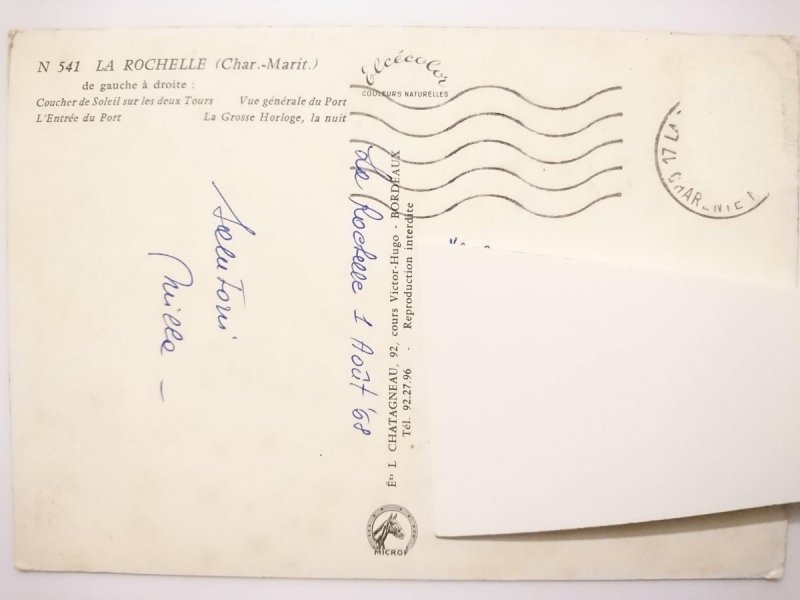 N 541 LA ROCHELLE (Char.-Marit.)
de gauche à droite :
Coucher de Soleil sur les deux Tours Vue générale du Port
L'Entrée du Port La Grosse Horloge, la nuit
Elcécolor
COULEURS NATURELLES
17 LA
CHAR
La Rochelle 1 Août '68
Salutoni
Milla -
Éts L CHATAGNEAU, 92, cours Victor-Hugo - BORDEAUX
Tél. 92.27.96 - Reproduction interdite
MICROF